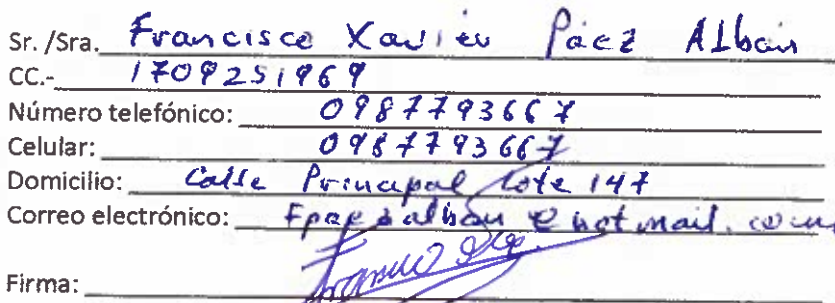 Sr. /Sra. Francisco Xavier Páez Albán
CC.- 1709251969
Número telefónico: 0987793667
Celular: 0987793667
Domicilio: Calle Principal Lote 147
Correo electrónico: Fpaezalban@hotmail.com
Firma: